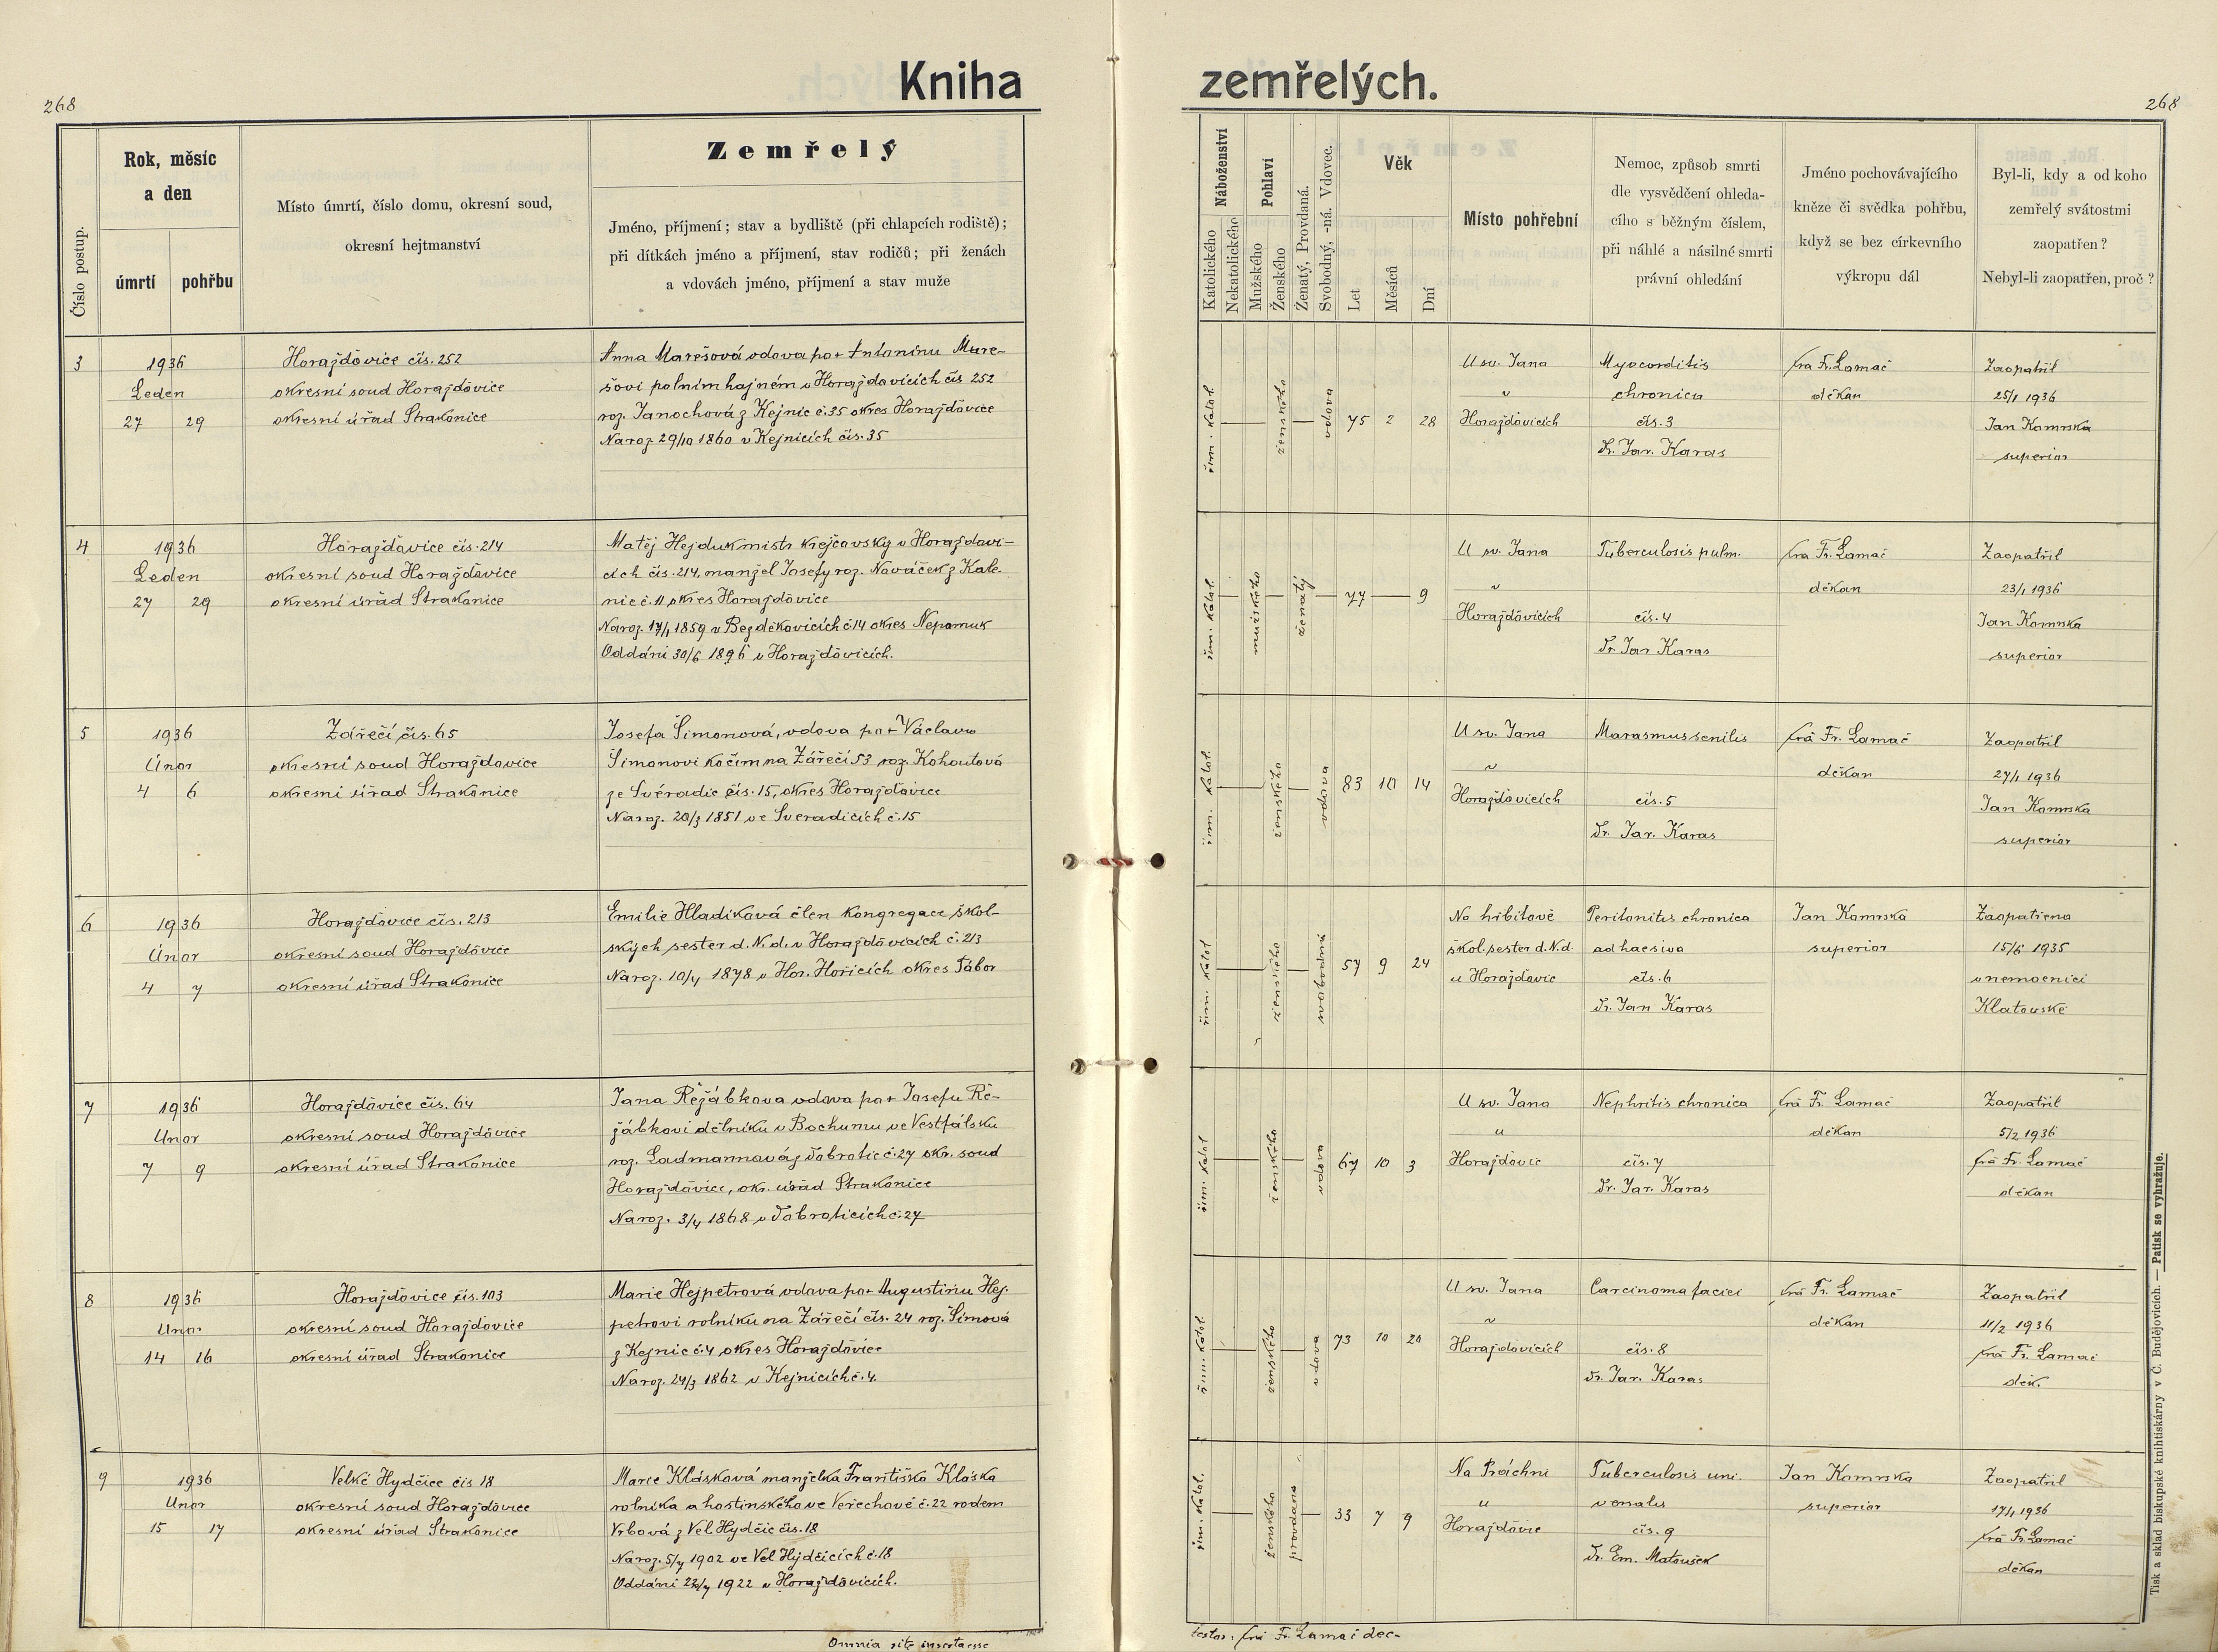 Kniha zemřelých.
268
268
Číslo postup.
Rok, měsíc
a den
úmrtí
pohřbu
Místo úmrtí, číslo domu, okresní soud,
okresní hejtmanství
Zemřelý
Jméno, příjmení; stav a bydliště (při chlapcích rodiště);
při dítkách jméno a příjmení, stav rodičů; při ženách
a vdovách jméno, příjmení a stav muže
Náboženství
Katolického
Nekatolického
Pohlaví
Mužského
Ženského
Ženatý, Provdaná.
Svobodný, -ná. Vdovec.
Věk
Let
Měsíců
Dní
Místo pohřební
Nemoc, způsob smrti
dle vysvědčení ohleda-
cího s běžným číslem,
při náhlé a násilné smrti
právní ohledání
Jméno pochovávajícího
kněze či svědka pohřbu,
když se bez církevního
výkropu dál
Byl-li, kdy a od koho
zemřelý svátostmi
zaopatřen?
Nebyl-li zaopatřen, proč?
3
1936
Leden
27 29
Horažďovice čís. 252
okresní soud Horažďovice
okresní úřad Strakonice
Anna Marešová vdova po + Antonínu Mare-
šovi polním hajném v Horažďovicích čís 252
roz. Janochová z Kejnic č. 35 okres Horažďovice
Naroz. 29/10 1860 v Kejnicích čís. 35
řím. katol.
ženského
vdova
75 2 28
U sv. Jana
"
Horažďovicích
Myocorditis
chronica
čís. 3
Dr. Jar. Karas
fra Fr. Lamač
děkan
Zaopatřil
25/1 1936
Jan Komrska
superior
4
1936
Leden
27 29
Horažďovice čís. 214
okresní soud Horažďovice
okresní úřad Strakonice
Matěj Hejduk mistr krejčovský v Horažďovi-
cích čís. 214, manžel Josefy roz. Nováček z Kale-
nic č. 11 okres Horažďovice
Naroz. 17/1 1859 v Bezděkovicích č. 14 okres Nepomuk
Oddáni 30/6 1896 v Horažďovicích.
řím. katol.
mužského
ženatý
77 9
U sv. Jana
"
Horažďovicích
Tuberculosis pulm.
čís. 4
Dr. Jar Karas
fra Fr. Lamač
děkan
Zaopatřil
23/1 1936
Jan Komrska
superior
5
1936
Únor
4 6
Zářečí čís. 65
okresní soud Horažďovice
okresní úřad Strakonice
Josefa Šimonová, vdova po + Václavu
Šimonovi kočím na Zářečí 53 roz. Kohoutová
ze Svéradic čís. 15, okres Horažďovice
Naroz. 20/3 1851 ve Sveradicích č. 15
řím. katol.
ženského
vdova
83 10 14
U sv. Jana
"
Horažďovicích
Marasmus senilis
čís. 5
Dr. Jar. Karas
frá Fr. Lamač
děkan
Zaopatřil
27/1 1936
Jan Komrska
superior
6
1936
Únor
4 7
Horažďovice čís. 213
okresní soud Horažďovice
okresní úřad Strakonice
Emilie Hladíková člen kongregace škol-
ských sester d. N. d. v Horažďovicích č. 213
Naroz. 10/4 1878 v Hor. Hořicích okres Tábor
řím. katol
ženského
svobodná
57 9 24
Na hřbitově
škol. sester d. N. d.
u Horažďovic
Peritonitis chronica
adhaesiva
čís. 6
Dr. Jan Karas
Jan Komrska
superior
Zaopatřena
15/6 1935
v nemocnici
Klatovské
7
1936
Unor
7 9
Horažďovice čís. 64
okresní soud Horažďovice
okresní úřad Strakonice
Jana Řežábkova vdova po + Josefu Ře-
žábkovi dělníku v Bochumu ve Vestfálsku
roz. Ladmannová z Dobrotic č. 27 okr. soud
Horažďovice, okr. úřad Strakonice
Naroz. 3/4 1868 v Dobroticích č. 27
řím. katol
ženského
vdova
67 10 3
U sv. Jana
"
Horažďovic
Nephritis chronica
čís. 7
Dr. Jar. Karas
frá Fr. Lamač
děkan
Zaopatřil
5/2 1936
frá Fr. Lamač
děkan
8
1936
Unor
14 16
Horažďovice čís. 103
okresní soud Horažďovice
okresní úřad Strakonice
Marie Hejpetrová vdova po + Augustinu Hej-
petrovi rolníku na Zářečí čís. 24 roz. Šimová
z Kejnic č. 4 okres Horažďovice
Naroz. 24/3 1862 v Kejnicích č. 4.
řím. katol.
ženského
vdova
73 10 20
U sv. Jana
"
Horažďovicích
Carcinoma faciei
čís. 8
dr. Jar. Karas
frá Fr. Lamač
děkan
Zaopatřil
11/2 1936
frá Fr. Lamač
děk.
9
1936
Unor
15 17
Velké Hydčice čís 18
okresní soud Horažďovice
okresní úřad Strakonice
Marie Klásková manželka Františka Kláska
rolníka a hostinského ve Veřechově č. 22 rodem
Vrbová z Vel Hydčic čís. 18
Naroz. 5/7 1902 ve Vel Hydčicích č. 18
Oddáni 1922 v Horažďovicích.
řím. katol.
ženského
provdaná
33 7 9
Na Práchni
"
Horažďovic
Tuberculosis uni.
venalis
čís. 9
Dr. Em. Matoušek
Jan Komrska
superior
Zaopatřil
17/1 1936
frá Fr. Lamač
děkan
Omnia rite inserta esse
testor: frá Fr. Lamač dec-
Tisk a sklad biskupské knihtiskárny v Č. Budějovicích. — Patisk se vyhražuje.